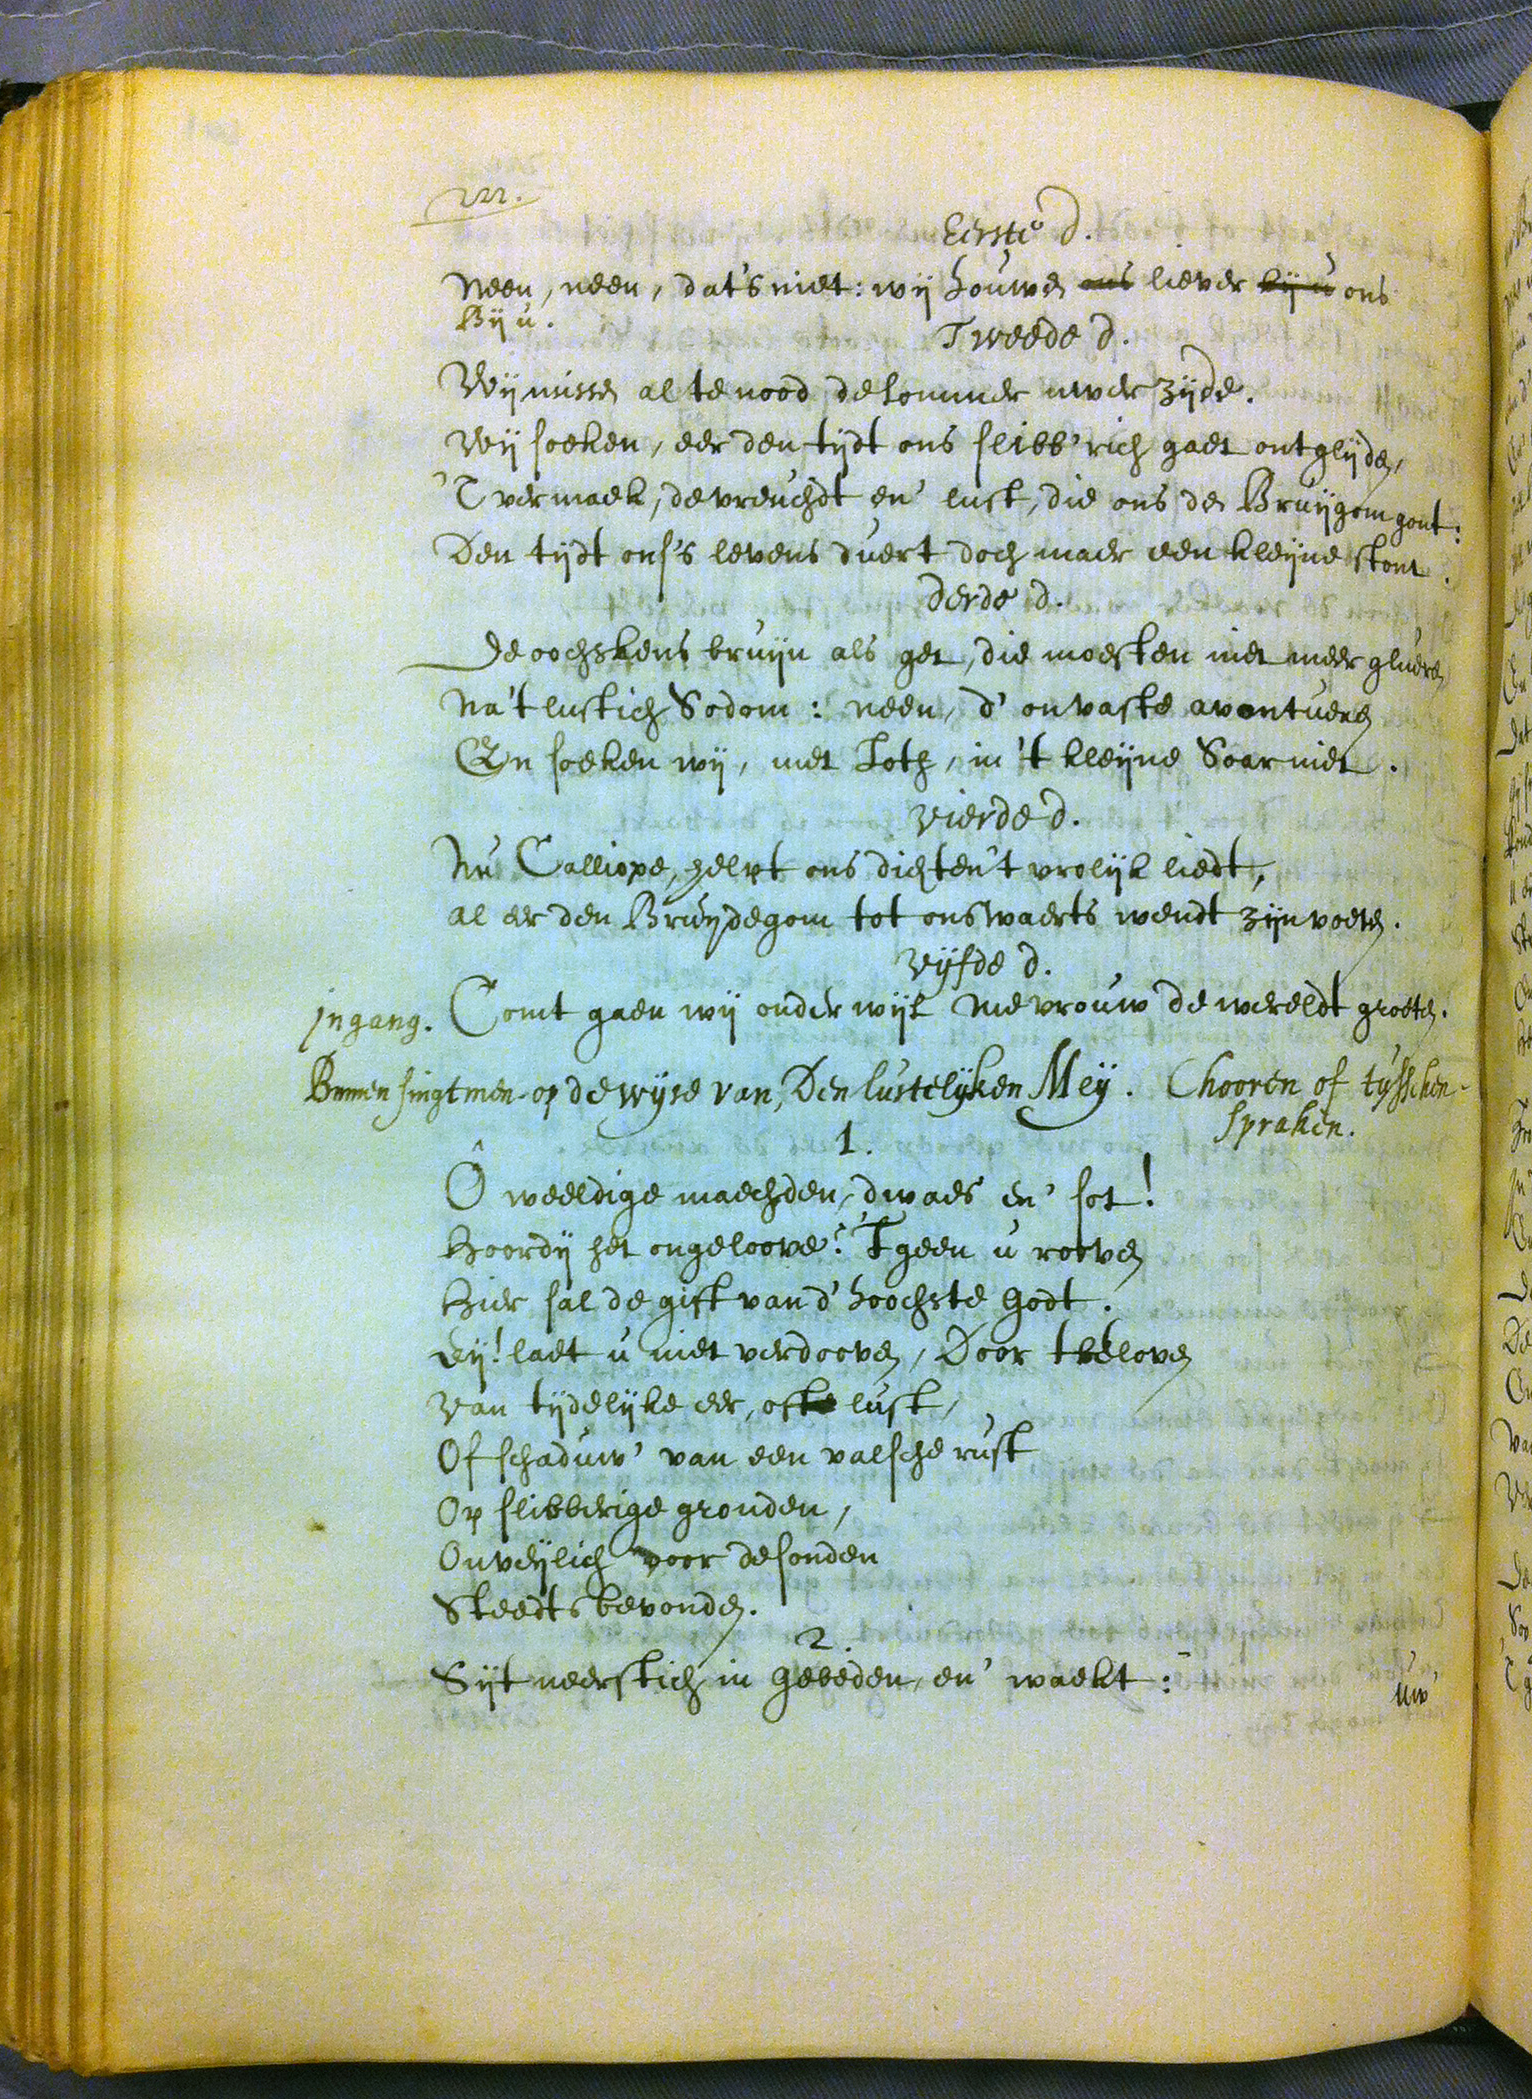 222.
Eerste d.
Neen, neen, dat's niet: wij houwen ons liever bij u ons
Bij u.
Tweede d.
Wij missen al te nood de lommer uwer zijde.
Wij soeken, eer den tijdt ons slibb'rich gaet ontglijden,
'T vermaek, de vreuchdt en' lust, die ons de Bruijgom gont:
Den tijdt ons's levens duert doch maer een kleijne stont.
derde d.
De oochskens bruijn als get, die moesten niet meer glueren
Na't lustich Sodom: neen, d' onvaste avontueren
En soeken wij, met Loth, in 't kleijne Soar niet.
vierde d.
Nu Calliope, helpt ons dichten't vrolijk liedt,
al eer den Bruijdegom tot onswaerts wendt zijn voeten.
Vijfde d.
Comt gaen wij onderwijl Mevrouw de wereldt groeten.
jngang.
Binnen singtmen op de wijse van, Den lustelijken Meij. Chooren of tusschen-
spraken.
1.
Ô weeldige maechden, dwaes en' sot!
Hoordij het ongeloove? 'Tgeen u rooven
Hier sal de gift van d' hoochste Godt.
Eij! laet u niet verdooven, Door tbeloven
Van tijdelijke eer, ofte lust,
Of schaduw' van een valsche rust
Op slibberige gronden,
Onveijlich voor de sonden
Steedts bevonden.
2.
Sijt neerstich in gebeden, en' waekt:
uw'